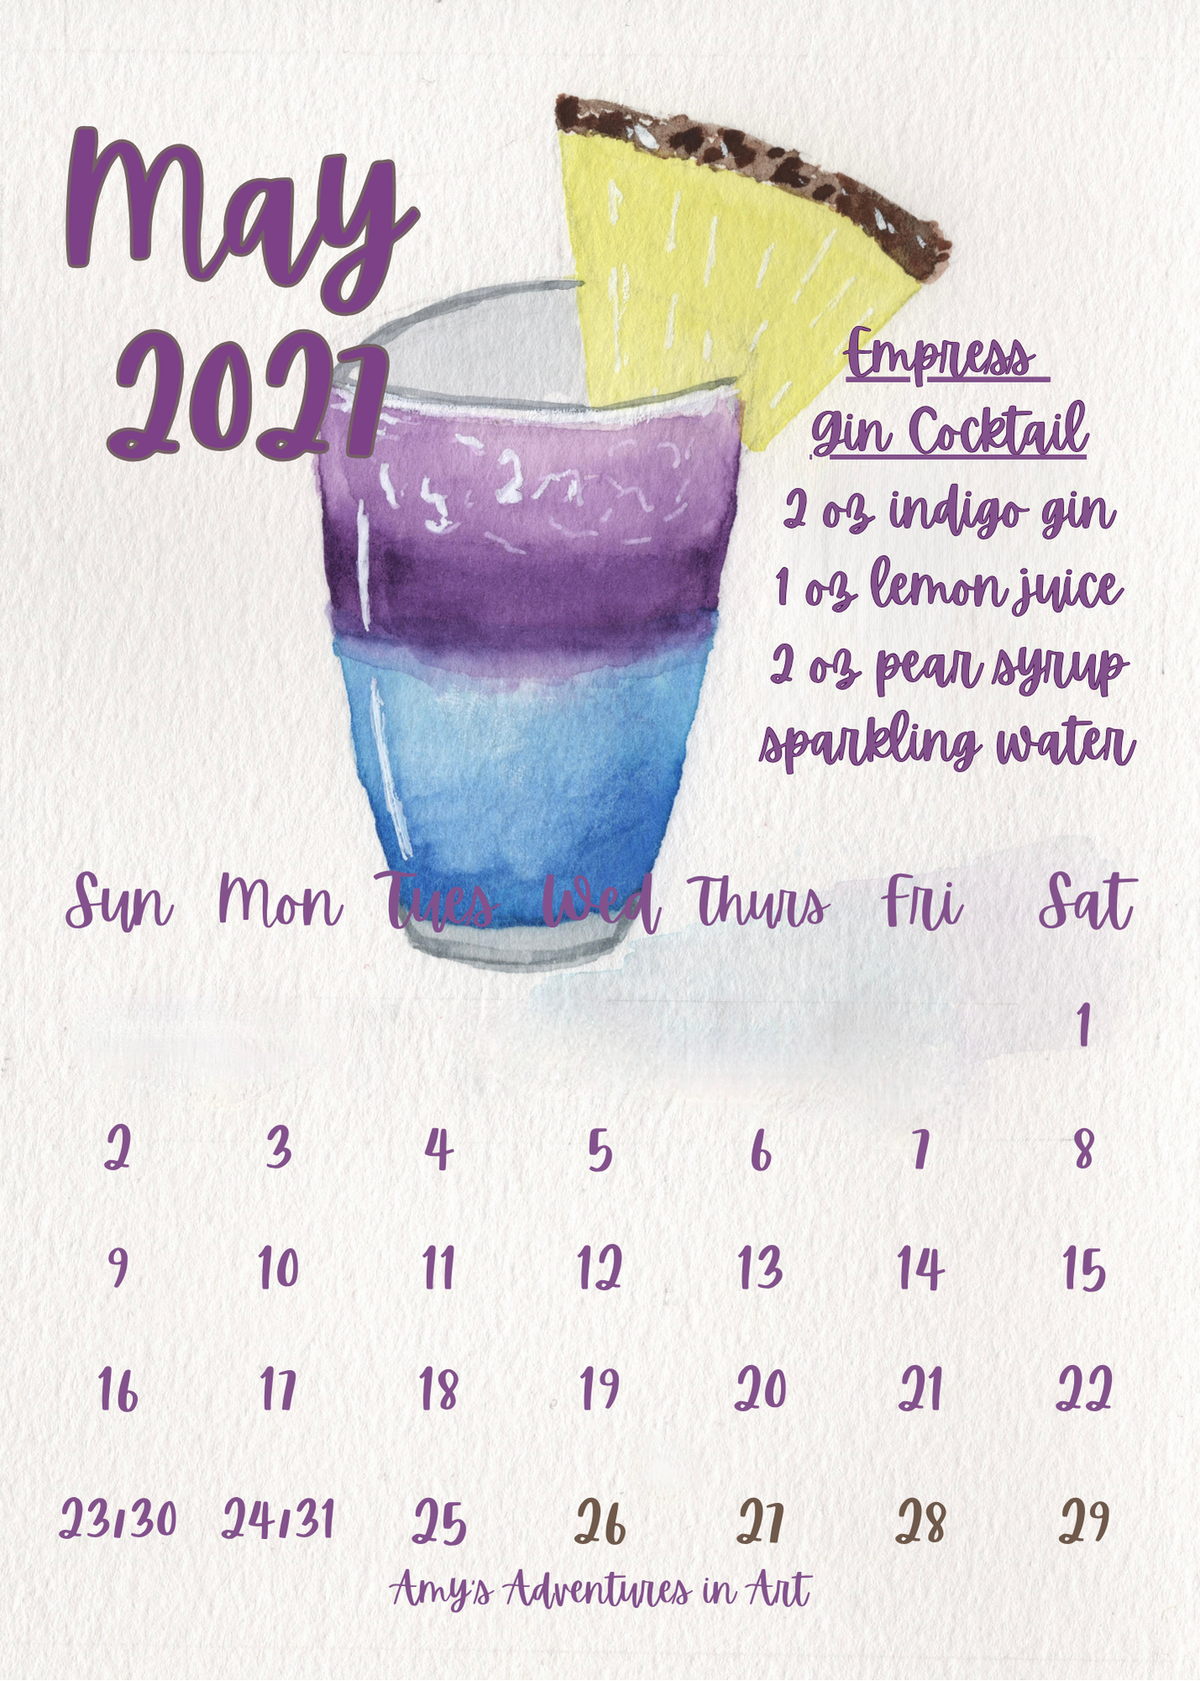 May
2021
Empress
Gin Cocktail
2 oz indigo gin
1 oz lemon juice
2 oz pear syrup
sparkling water
Sun Mon Tues Wed Thurs Fri Sat
1
2 3 4 5 6 7 8
9 10 11 12 13 14 15
16 17 18 19 20 21 22
23/30 24/31 25 26 27 28 29
Amy's Adventures in Art